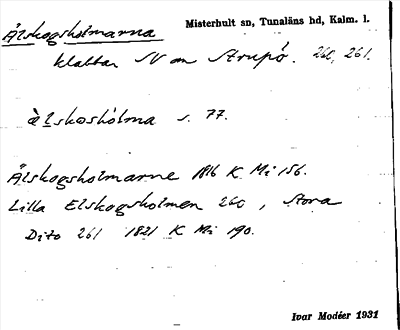 Älskogsholmarna
Misterhult sn, Tunaläns hd, Kalm. l.
klabbar SV om Strupö. 260, 261.
älskoshólma s. 77.
Älskogsholmarne 1816 K Mi 156.
Lilla Elskogsholmen 260, Stora
Dito 261 1821 K Mi 190.
Ivar Modéer 1931